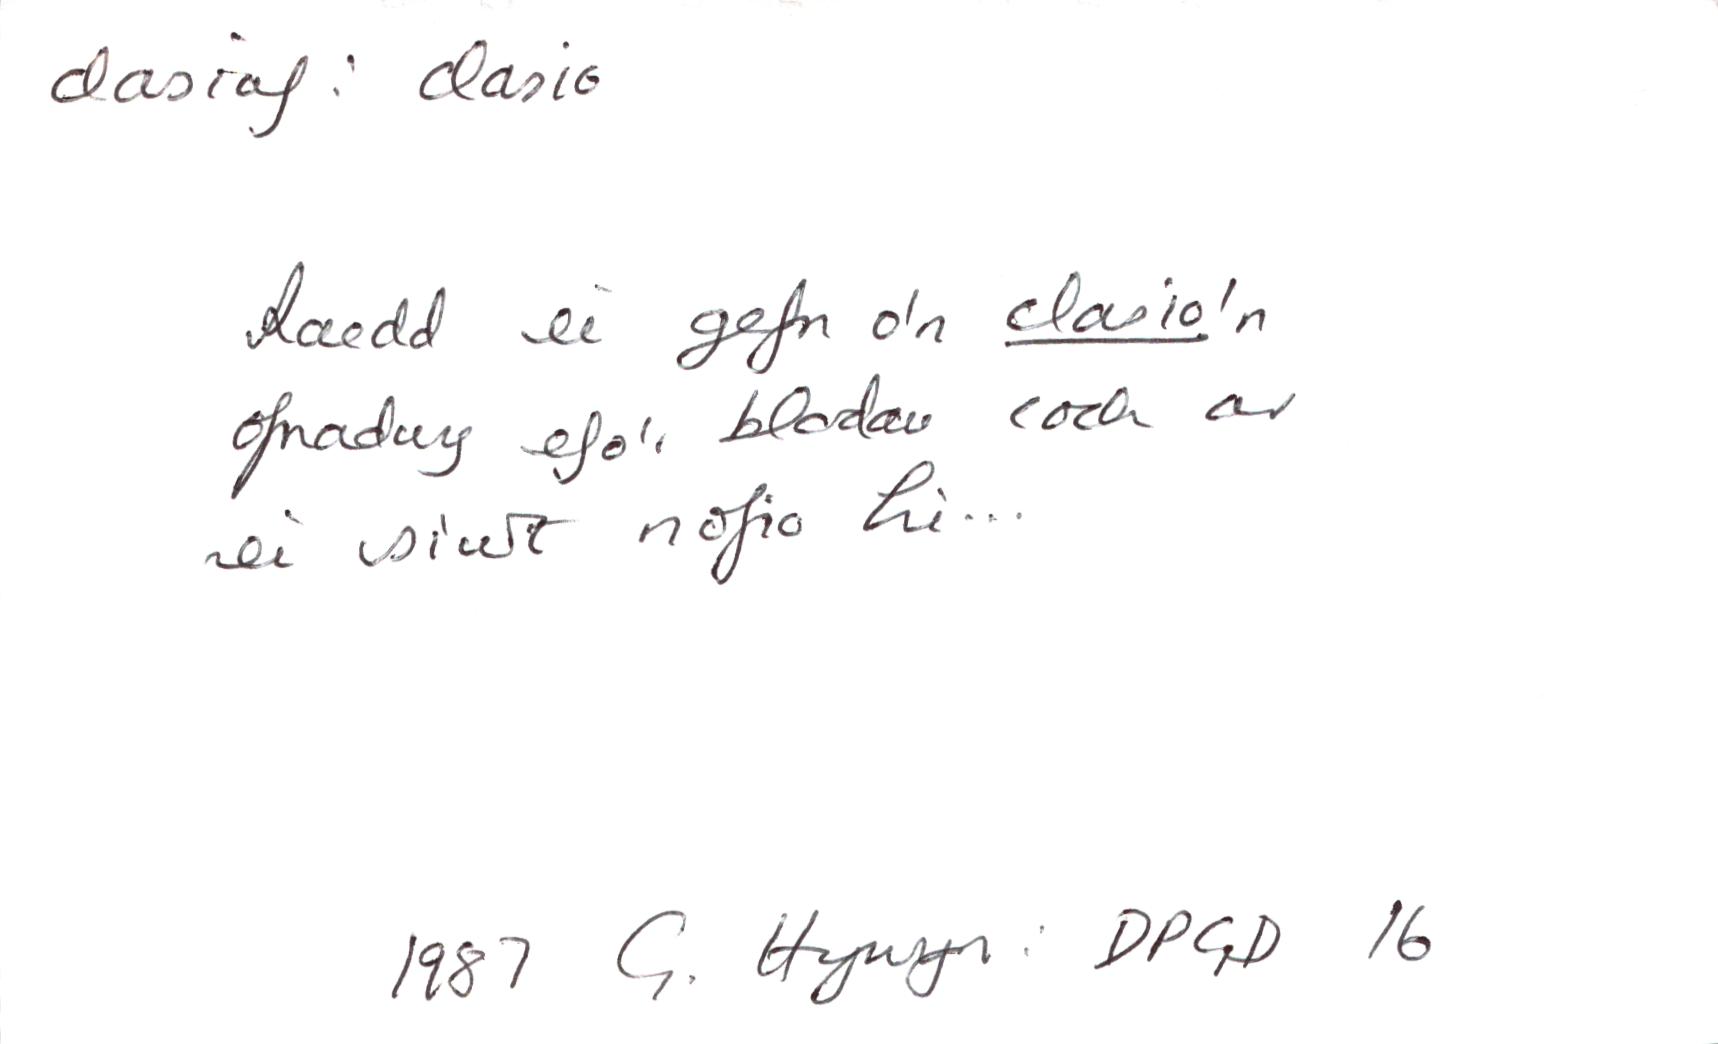 clasiaf: clasio
Roedd ei gefn o'n clasio'n
ofnadwy efo'r blodau coch ar
ei siwt nofio hi...
1987 G. Hywyn: DPGD 16